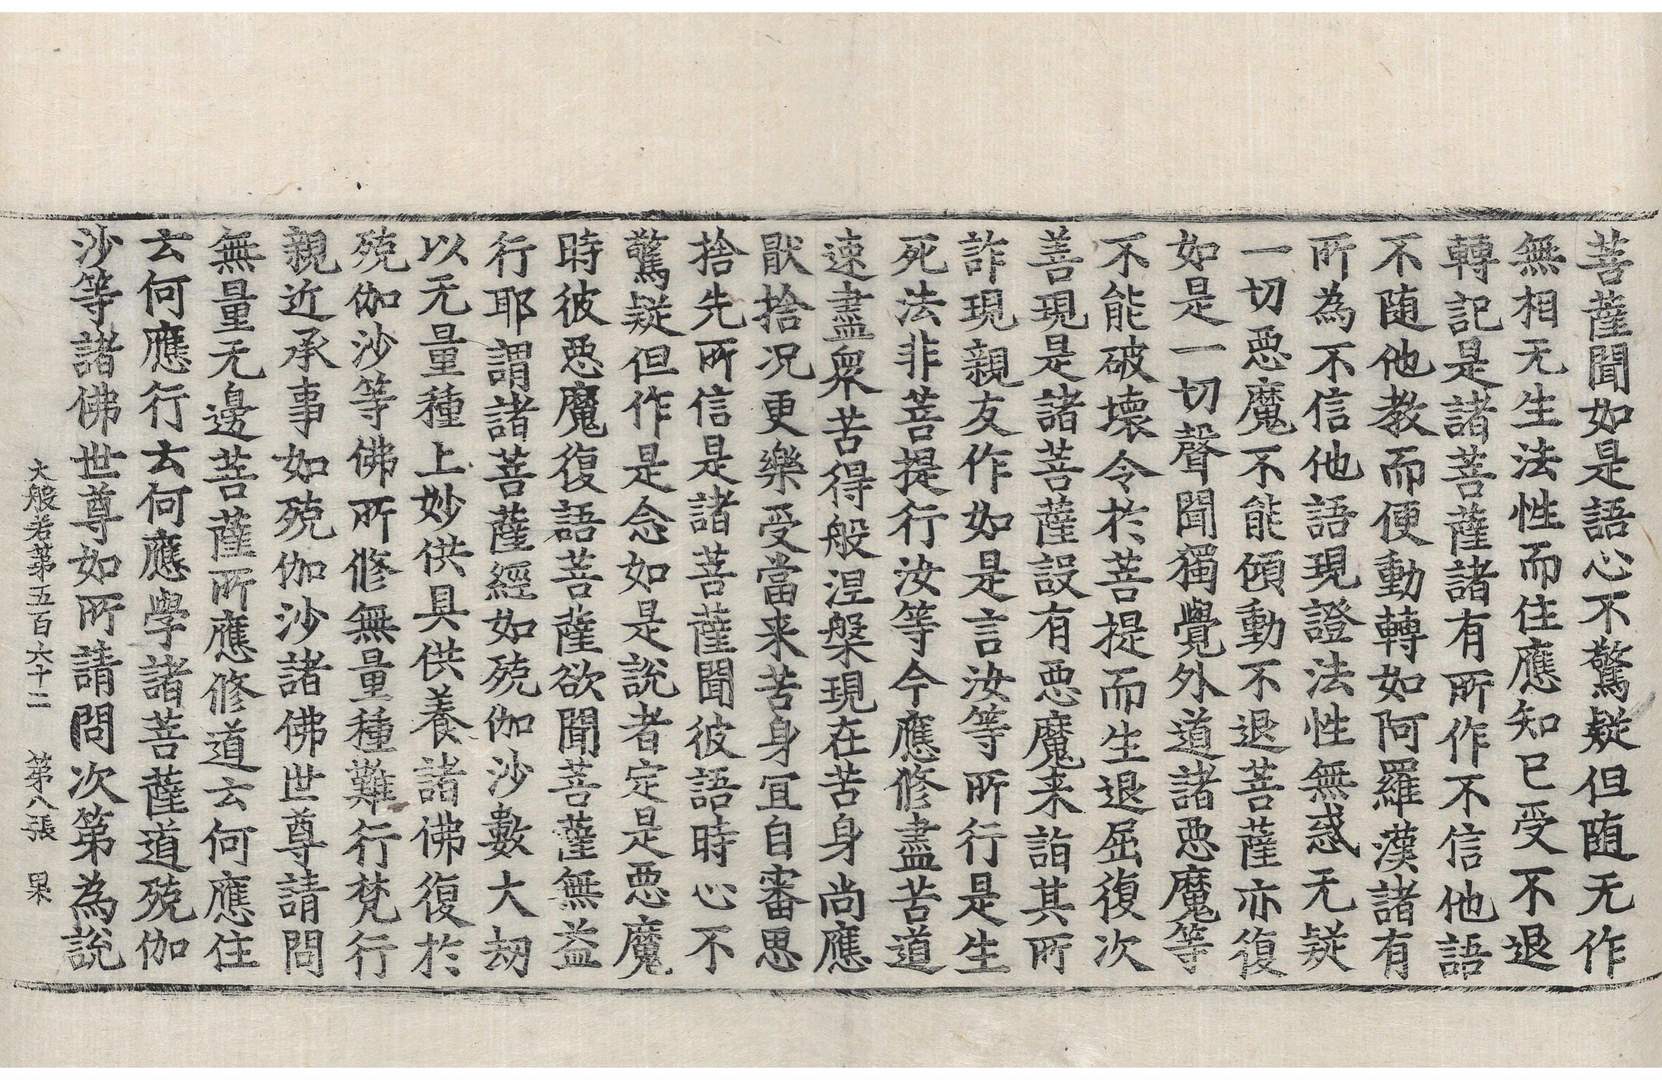 菩薩聞如是語心不驚疑但随无作
無相无生法性而住應知已受不退
轉記是諸菩薩諸有所作不信他語
不随他教而便動轉如阿羅漢諸有
所為不信他語現證法性無惑无疑
一切惡魔不能傾動不退菩薩亦復
如是一切聲聞獨覺外道諸惡魔等
不能破壞令於菩提而生退屈復次
善現是諸菩薩設有惡魔来詣其所
詐現親友作如是言汝等所行是生
死法非菩提行汝等今應修盡苦道
速盡衆苦得般涅槃現在苦身尚應
猒捨况更樂受當来苦身宜自審思
捨先所信是諸菩薩聞彼語時心不
驚疑但作是念如是說者定是惡魔
時彼惡魔復語菩薩欲聞菩薩無益
行耶謂諸菩薩經如殑伽沙數大劫
以无量種上妙供具供養諸佛復於
殑伽沙等佛所修無量種難行梵行
親近承事如殑伽沙諸佛世尊請問
無量无邊菩薩所應修道云何應住
云何應行云何應學諸菩薩道殑伽
沙等諸佛世尊如所請問次第為說
大般若第五百六十二 第八張 杲